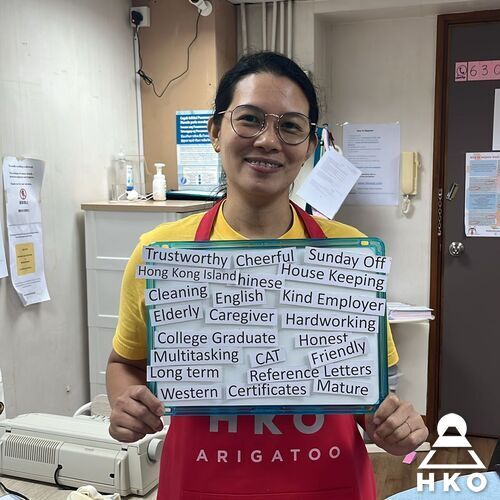 Trustworthy Cheerful Sunday Off
Hong Kong Island hinese House Keeping
Cleaning English Kind Employer
Elderly Caregiver Hardworking
College Graduate Honest
Multitasking CAT Friendly
Long term Reference Letters
Western Certificates Mature
HKO
ARIGATOO
630
HKO